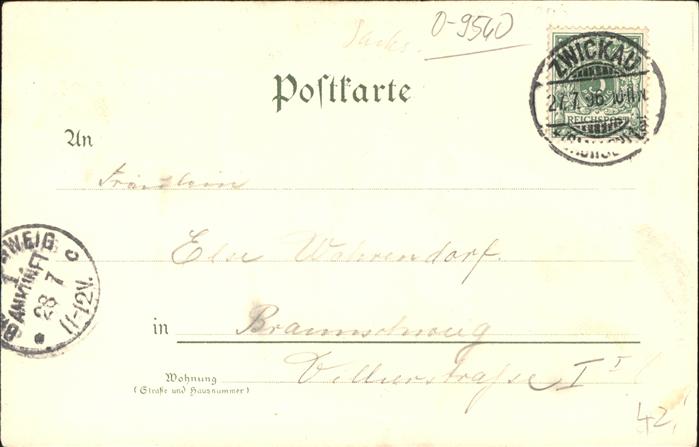 Sachs.
0-9540
ZWICKAU
27.7.96
REICHSPOST
Postkarte
An
Fräulein
Else Wahrendorf.
in Braunschweig
Wohnung
(Straße und Hausnummer)
ANKUNFT
28 7
11-12V.
C
42.